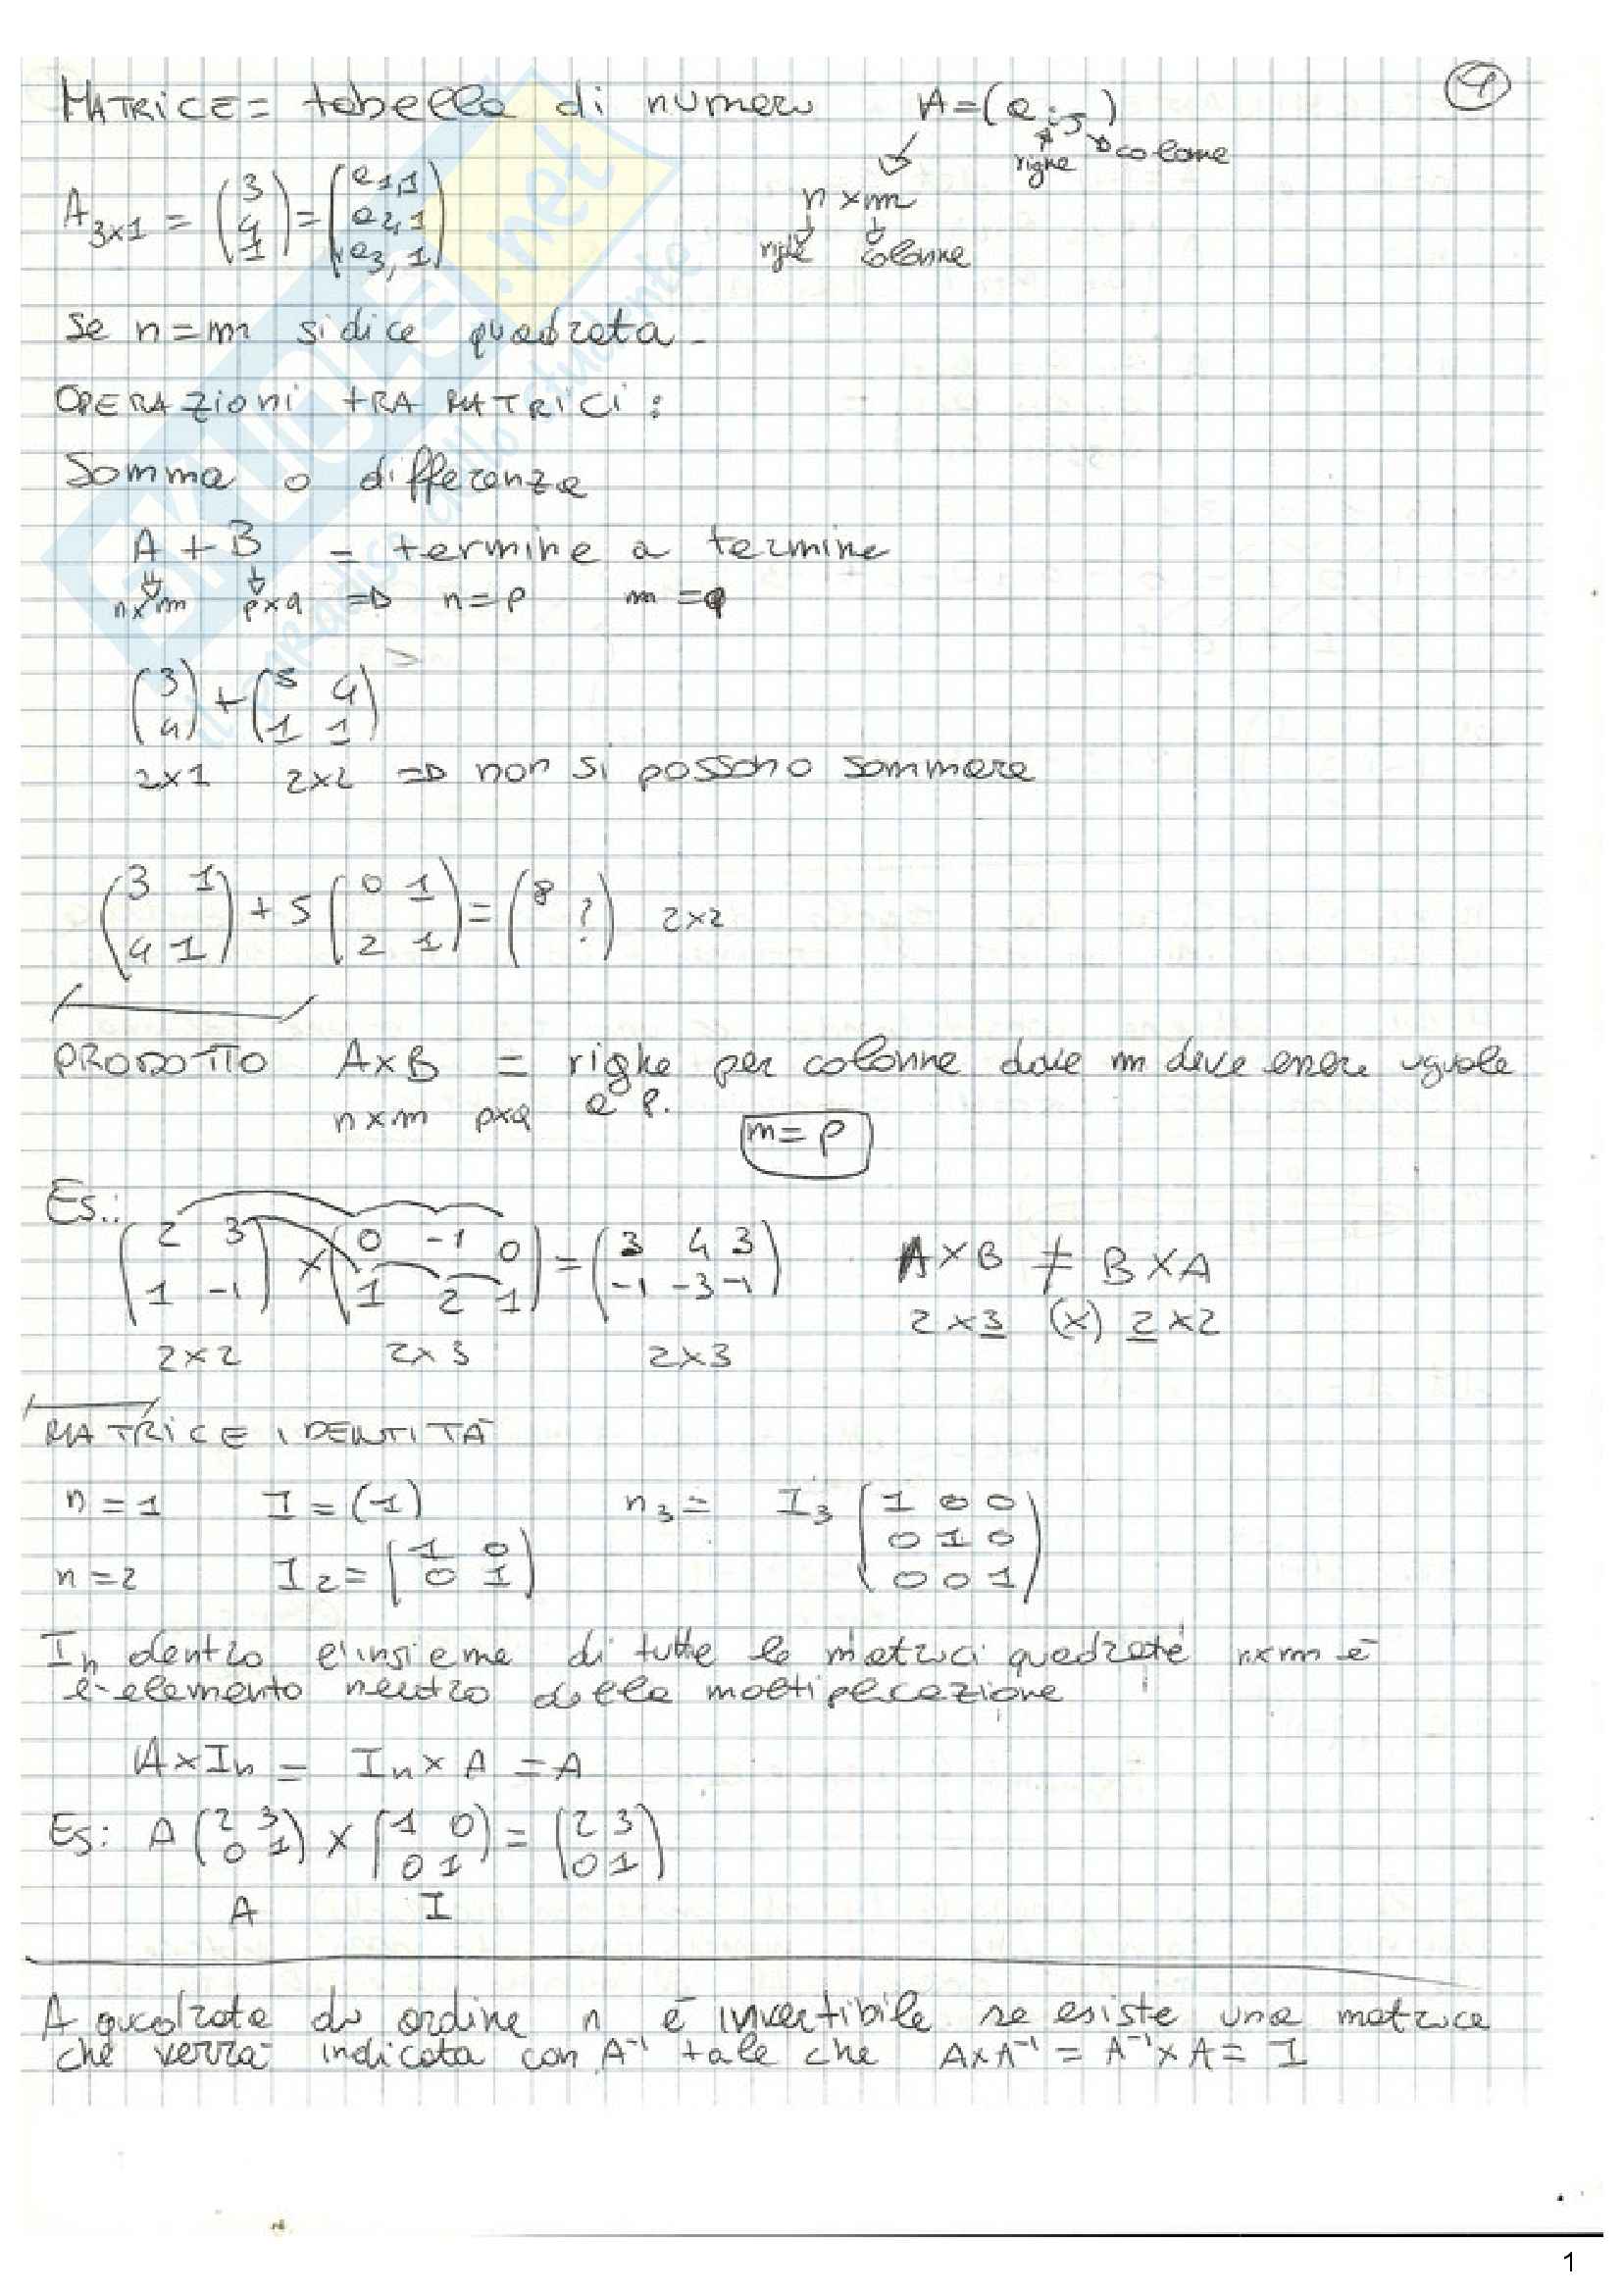 MATRICE = tabella di numeri A=(a i,j) 1
righe colonne
A 3x1 = (3 4 1) = (a1,1 a2,1 a3,1) n x m
righe colonne
Se n=m si dice quadrata.
OPERAZIONI TRA MATRICI:
Somma o differenza
A + B = termine a termine
n x m p x q => n=p m=q
(3 4) + (5 4 1 1)
2x1 2x2 => non si possono sommare
(3 1 4 1) + 5 (0 1 2 1) = (8 ?) 2x2
PRODOTTO A x B = righe per colonne dove m deve essere uguale
n x m p x q a p.
m = p
Es.:
(2 3 1 -1) x (0 -1 0 1 2 1) = (3 4 3 -1 -3 -1) A x B ≠ B x A
2x3 (x) 2x2
2x2 2x3 2x3
MATRICE IDENTITÀ
n=1 I=(1) n3= I3 (1 0 0 0 1 0 0 0 1)
n=2 I2=(1 0 0 1)
In dentro l'insieme di tutte le matrici quadrate nxm è
l'elemento neutro della moltiplicazione
A x In = In x A = A
Es: A (2 3 0 1) x (1 0 0 1) = (2 3 0 1)
A I
A quadrata di ordine n è invertibile se esiste una matrice
che verrà indicata con A⁻¹ tale che A x A⁻¹ = A⁻¹ x A = I
SKUOLA.net
il paradiso dello studente
1